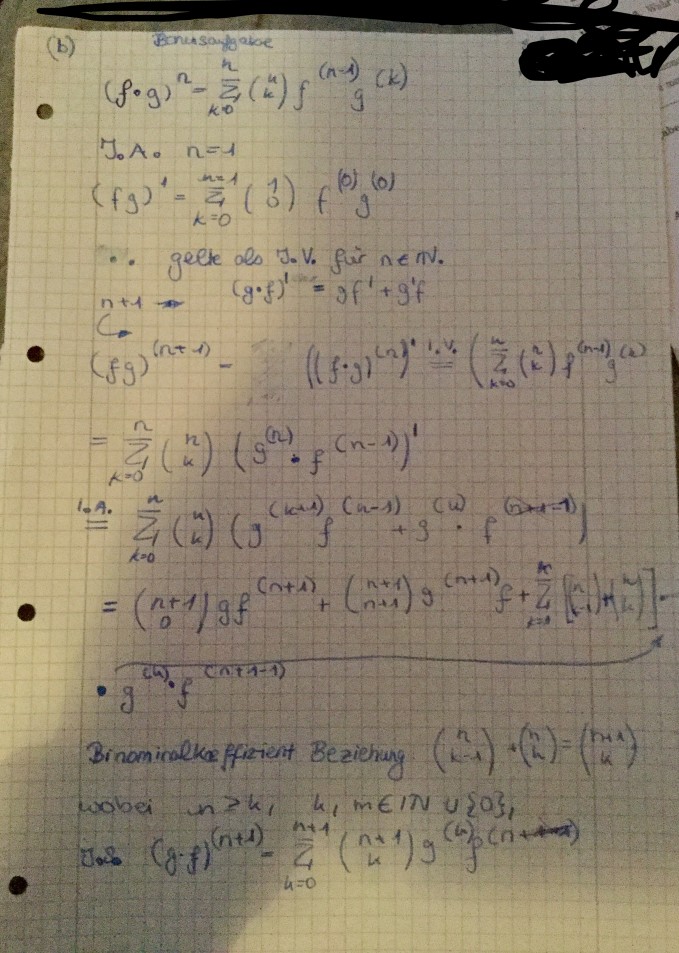 (b) Bonusaufgabe
(f•g)^n = Σ_{k=0}^{n} (n k) f^(n-1) g^(k)
I.A. n=1
(fg)^1 = Σ_{k=0}^{n=1} (1 0) f^(0) g^(0)
gelte als I.V. für n∈ℕ.
n+1 → (g•f)' = gf' + g'f
(fg)^(n+1) = ((f•g)^(n))' =^{I.V.} (Σ_{k=0}^{n} (n k) f^(n-1) g^(k)
= Σ_{k=0}^{n} (n k) (g^(n) • f^(n-1))'
=^{I.A.} Σ_{k=0}^{n} (n k) (g^(k+1) f^(n-1) + g^(k) • f^(n+1-1))
= (n+1 0) g f^(n+1) + (n+1 n+1) g^(n+1) f + Σ_{k=1}^{k} [(n k-1)+(n k)] •
• g^(k) • f^(n+1-1)
Binominalkoeffizient Beziehung (n k-1) + (n k) = (n+1 k)
wobei n ≥ k, k, m ∈ ℕ ∪ {0},
I.S. (g•f)^(n+1) = Σ_{k=0}^{n+1} (n+1 k) g^(k) f